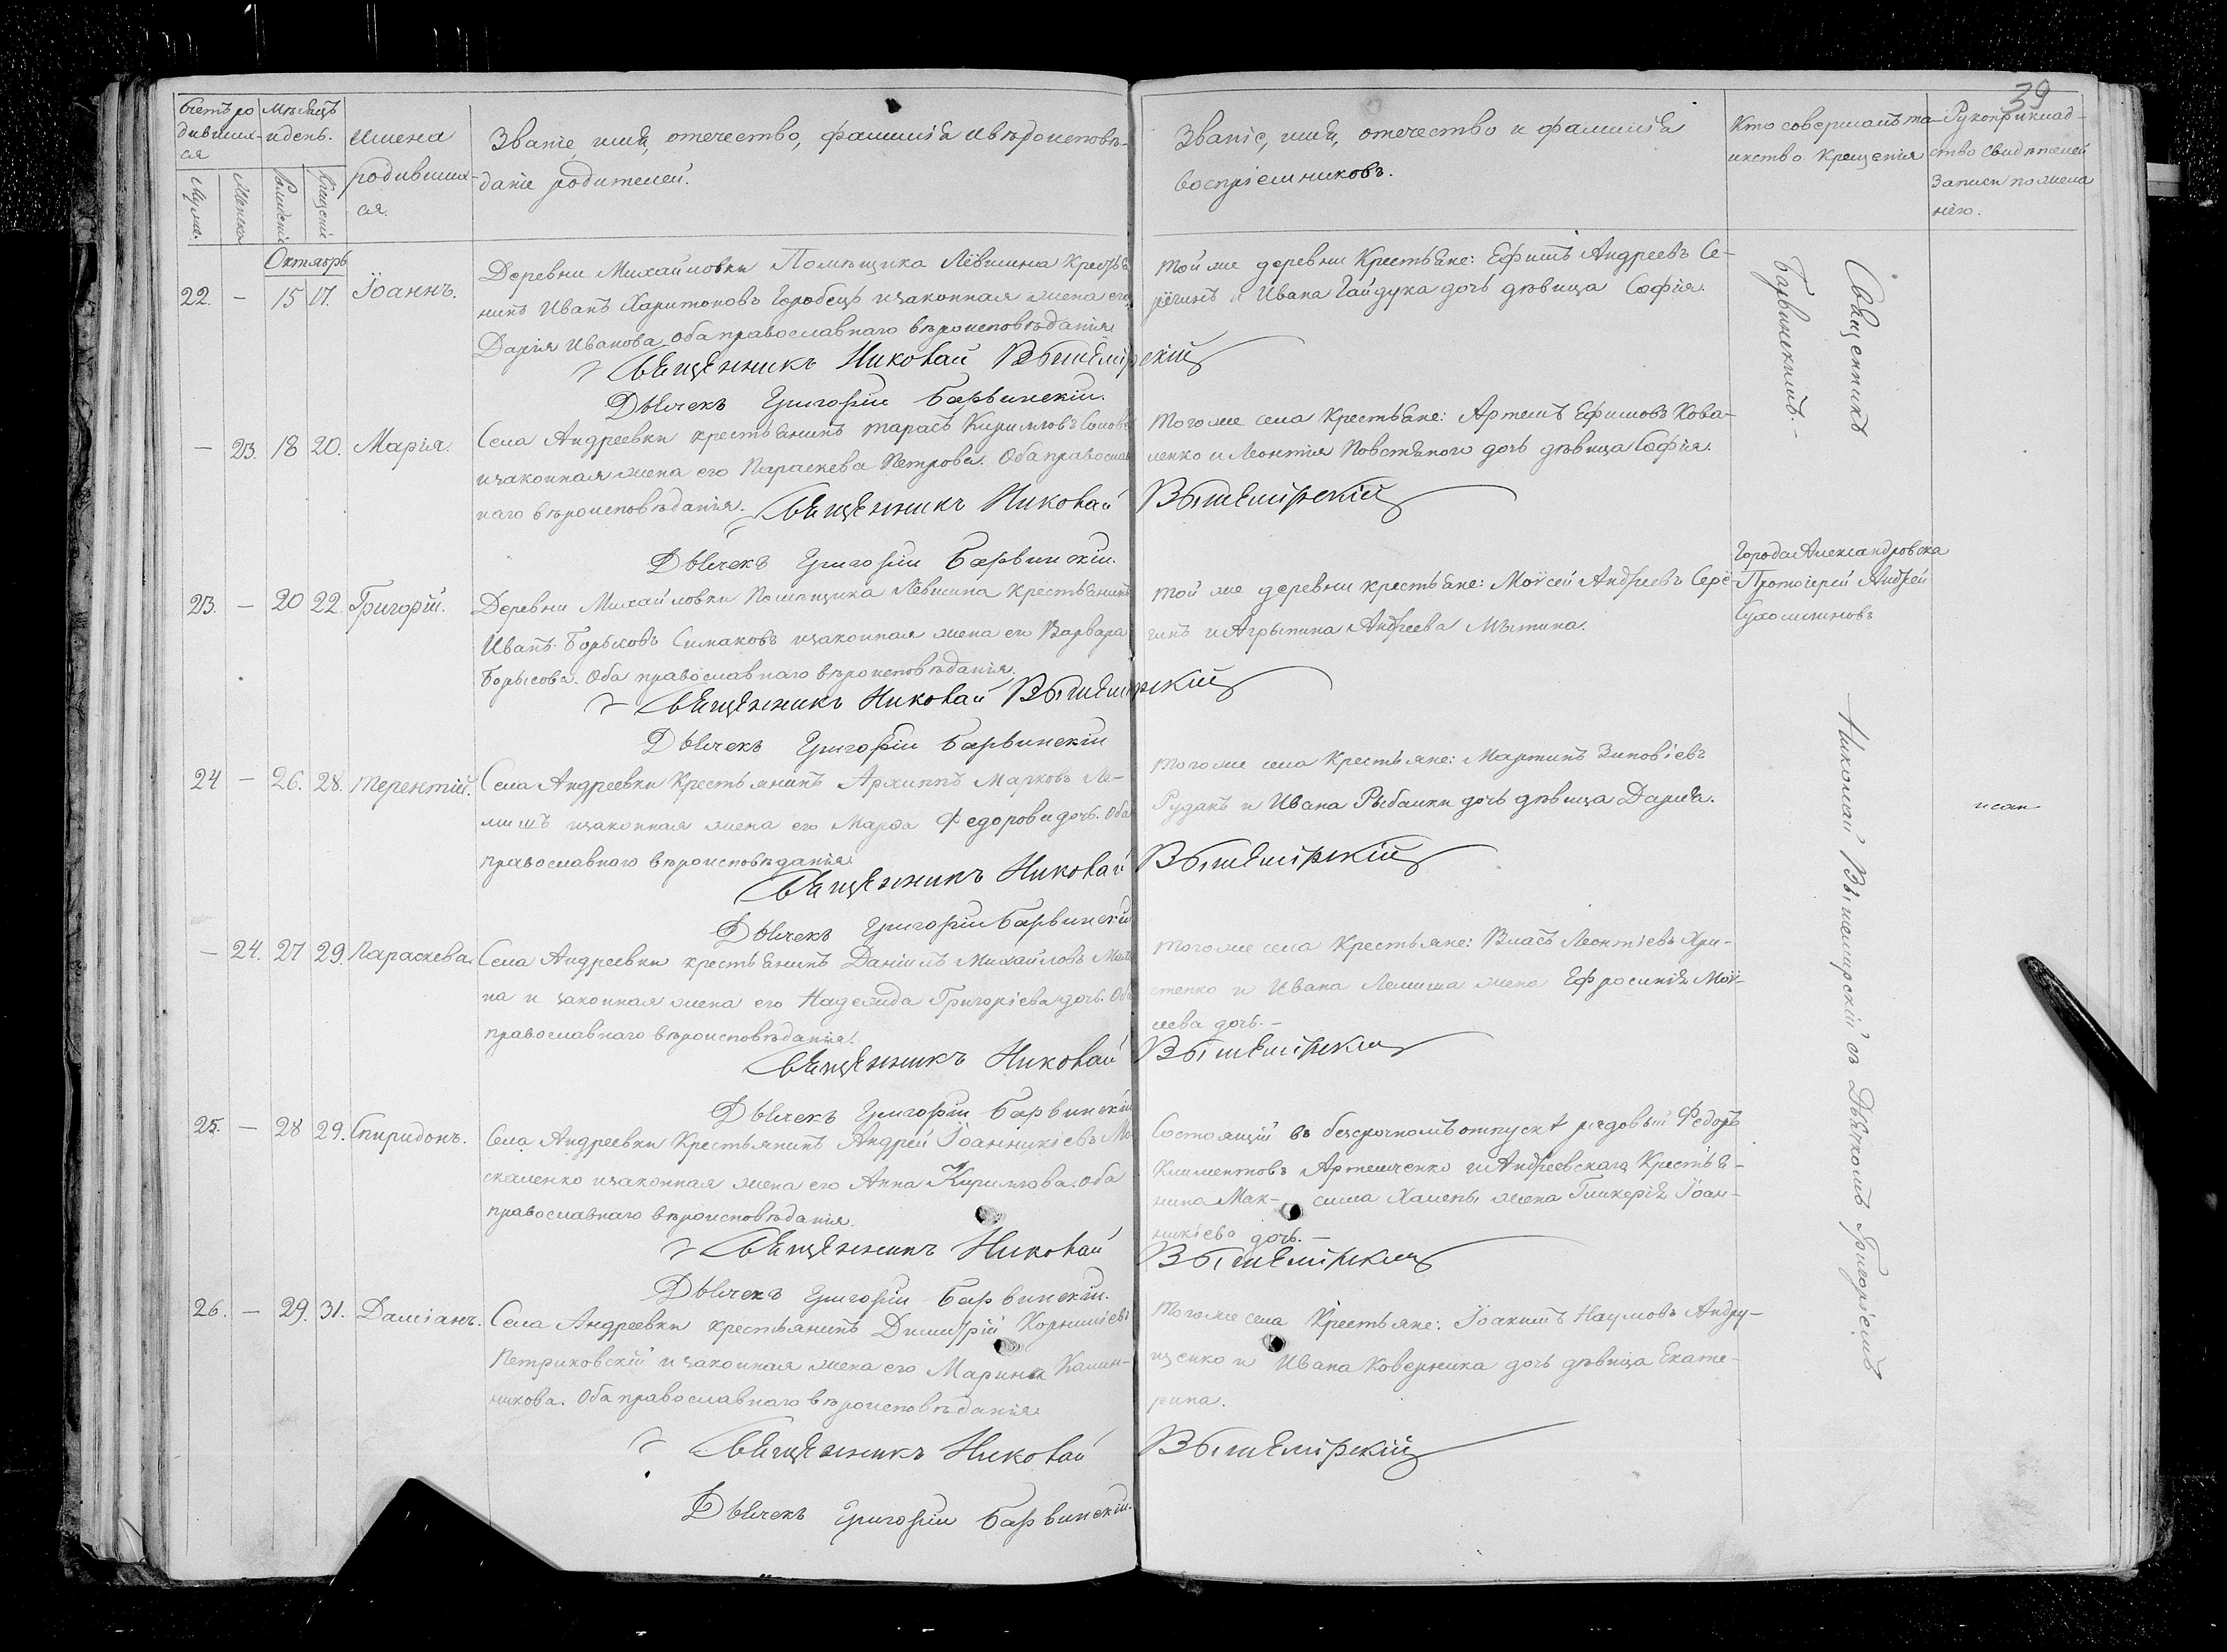 39
Счетъ ро
дивших-
ся
Муж.
Женска
Мѣсяцъ
и день.
Рожденія
Крещенія
Имена
родивших-
ся.
Званіе, имя, отечество, фамилія и вѣроисповѣ-
даніе родителей.
Званіе, имя, отечество и фамилія
воспріемниковъ.
Кто совершалъ та-
инство крещенія
Рукоприклад-
ство свидѣтелей
записи по жела
нію.
Октябрь
22. — 15 17. Іоаннъ.
Деревни Михайловки Помѣщика Лёвшина Крестья
нинъ Иванъ Харитоновъ Горобецъ и законная жена его
Дарія Иванова, оба православнаго вѣроисповѣданія
Священникъ Николай Вышемірскій
Дьячекъ Григорій Барвинскій.
той же деревни Крестьяне: Ефимъ Андреевъ Се-
рёгинъ и Ивана Гайдука дочь дѣвица Софія.
— 23. 18 20. Марія.
Села Андреевки крестьянинъ Тарасъ Кирилловъ
и законная жена его Параскева Петрова. Оба православ
наго вѣроисповѣданія. Священникъ Николай Вышемірскій
Дьячекъ Григорій Барвинскій.
Того же села Крестьяне: Артемъ Ефимовъ Кова-
ленко и Леонтія Повстяного дочь дѣвица Софія.
23. — 20 22 Григорій.
Деревни Михайловки Помѣщика Лёвшина Крестьянинъ
Иванъ Борисовъ Симаковъ и законная жена его Варвара
Борисова. Оба православнаго вѣроисповѣданія.
Священникъ Николай Вышемірскій
Дьячекъ Григорій Барвинскій
той же деревни крестьяне: Моѵсей Андреевъ Серё-
гинъ и Агрыпина Андреева Мътина.
Города Александровска
Протоіерей Андрей
Сухомлиновъ
24 — 26. 28. Терентій.
Села Андреевки Крестьянинъ Архиппъ Марковъ Ле-
мишъ и законная жена его Марфа Федорова дочь. Оба
православнаго вѣроисповѣданія.
Священникъ Николай Вышемірскій
Дьячекъ Григорій Барвинскій
Того же села Крестьяне: Мартинъ Зиновіевъ
Рудакъ и Ивана Рыбалки дочь дѣвица Дарія.
— 24. 27 29. Параскева.
Села Андреевки крестьянинъ Даніилъ Михайловъ
на и законная жена его Надежда Григоріева дочь. Оба
православнаго вѣроисповѣданія.
Священникъ Николай Вышемірскій
Дьячекъ Григорій Барвинскій
Того же села Крестьяне: Власъ Леонтіевъ Хри-
стенко и Ивана Лемиша жена Ефросинія Моѵ-
сеева дочь. —
25. — 28 29. Спиридонъ.
Села Андреевки Крестьянинъ Андрей Іоанникіевъ Мо
скаленко и законная жена его Анна Кириллова. Оба
православнаго вѣроисповѣданія.
Священникъ Николай Вышемірскій
Дьячекъ Григорій Барвинскій.
Состоящій въ безсрочномъ отпуску рядовый Федоръ
Климентовъ Артемченко и Андреевскаго Крестья-
нина Мак- сима Халепы жена Гликерія Іоан-
никіева дочь. —
26. — 29. 31. Даміанъ.
Села Андреевки крестьянинъ Димитрій Корниліевъ
Петриковскій и законная жена его Марина Калин-
никова. Оба православнаго вѣроисповѣданія
Священникъ Николай Вышемірскій
Дьячекъ Григорій Барвинскій.
Того же села Крестьяне: Іоакимъ Наумовъ Андру-
щенко и Ивана Коверника дочь дѣвица Екате-
рина.
Священникъ
Николай Вышемирскій съ Дьячкомъ Григоріемъ
Барвинскимъ. —